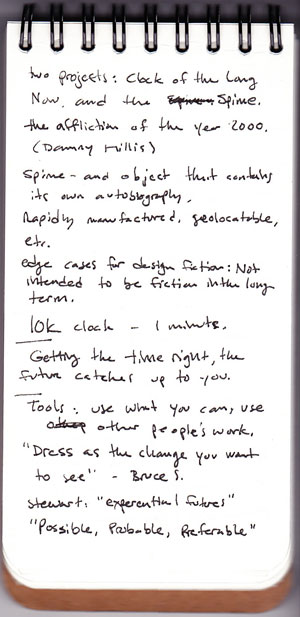 two projects: Clock of the Long
Now, and the Spime.
the affliction of the year 2000.
(Danny Hillis)
Spime - and object that contains
its own autobiography.
Rapidly manufactured, geolocatable,
etc.
edge cases for design fiction: Not
intended to be fiction in the long
term.
10K clock - 1 minute.
Getting the time right, the
future catches up to you.
Tools: use what you can, use
other people's work.
"Dress as the change you want
to see" - Bruce S.
Stewart: "experential futures"
"Possible, Probable, Preferable"